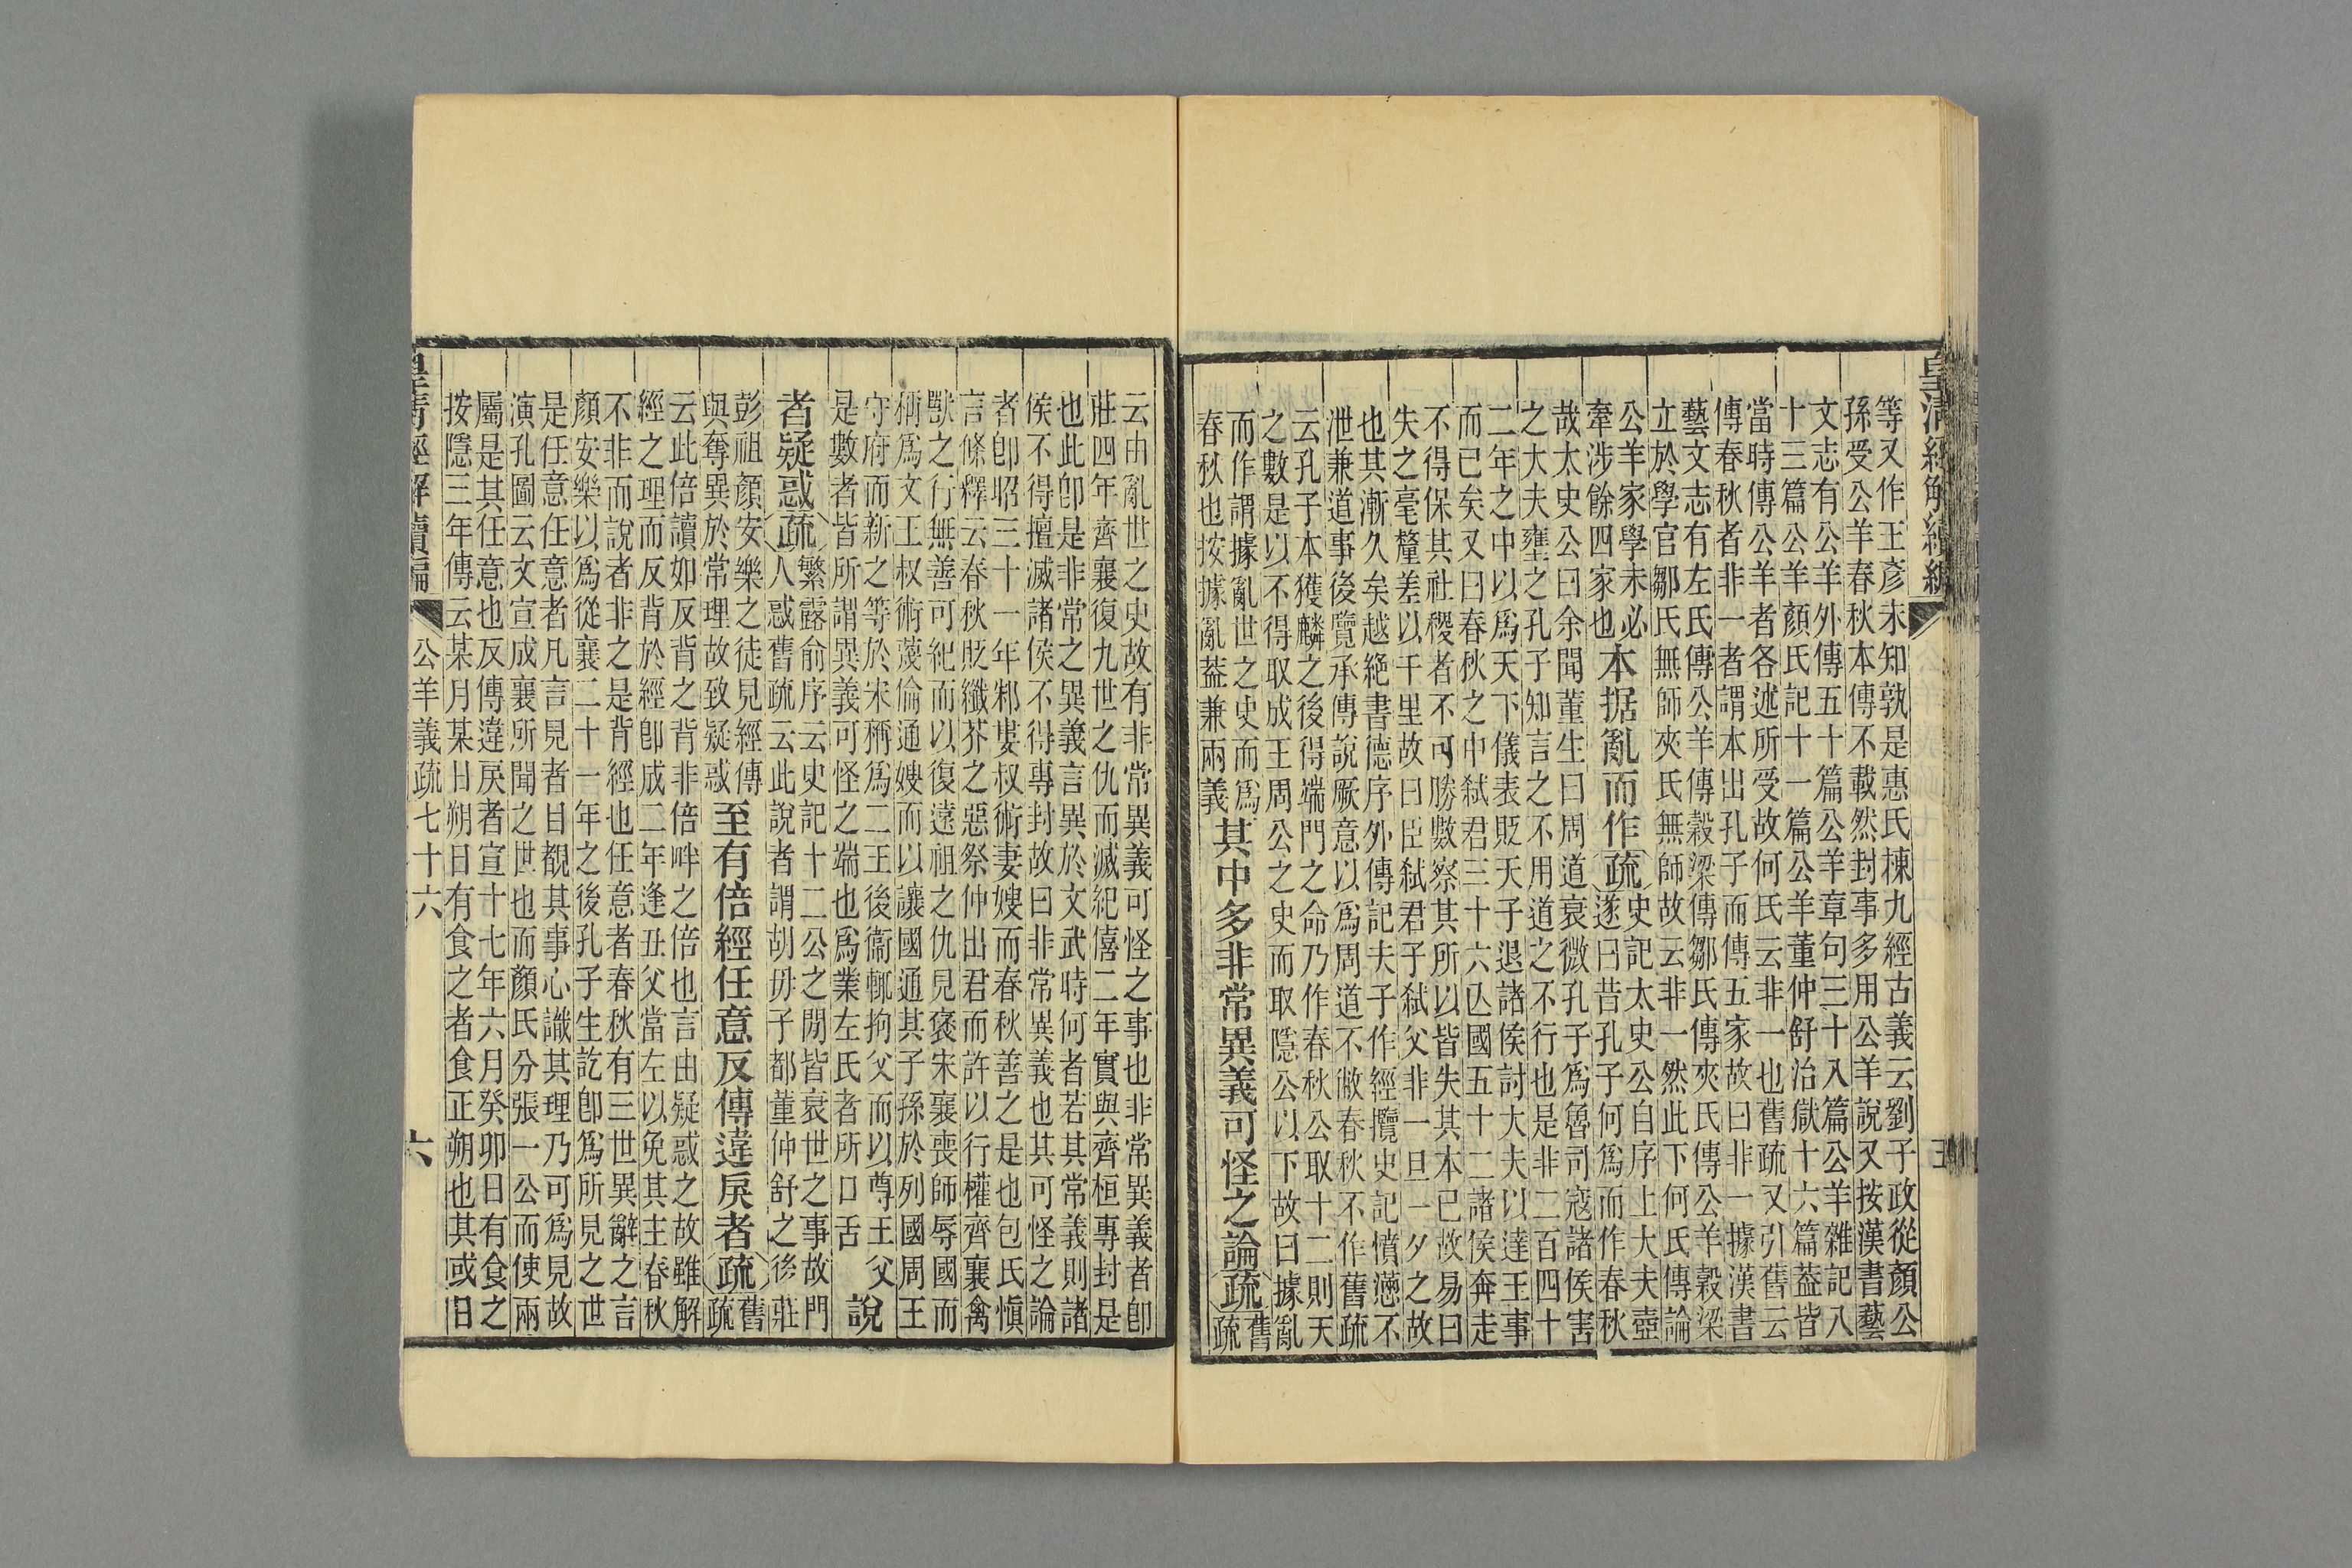 皇清經解續編
五
等又作王彥未知孰是惠氏棟九經古義云劉子政從顏公
孫受公羊春秋本傳不載然封事多用公羊說又按漢書藝
文志有公羊外傳五十篇公羊章句三十八篇公羊雜記八
十三篇公羊顏氏記十一篇公羊董仲舒治獄十六篇葢皆
當時傳公羊者各述所受故何氏云非一也舊疏又引舊云
傳春秋者非一者謂本出孔子而傳五家故曰非一據漢書
藝文志有左氏傳公羊傳穀梁傳鄒氏傳夾氏傳公羊穀梁
立於學官鄒氏無師夾氏無師故云非一然此下何氏傳論
公羊家學未必
牽涉餘四家也
本据亂而作疏
史記太史公自序上大夫壺
遂曰昔孔子何爲而作春秋
哉太史公曰余聞董生曰周道衰微孔子爲魯司寇諸侯害
之大夫壅之孔子知言之不用道之不行也是非二百四十
二年之中以爲天下儀表貶天子退諸侯討大夫以達王事
而已矣又曰春秋之中弑君三十六亾國五十二諸侯奔走
不得保其社稷者不可勝數察其所以皆失其本已故易曰
失之毫釐差以千里故曰臣弑君子弑父非一旦一夕之故
也其漸久矣越絕書德序外傳記夫子作經攬史記憤懣不
泄兼道事後覽承傳說厥意以爲周道不敝春秋不作舊疏
云孔子本獲麟之後得端門之命乃作春秋公取十二則天
之數是以不得取成王周公之史而取隱公以下故曰據亂
而作謂據亂世之史而爲
春秋也按據亂葢兼兩義
其中多非常異義可怪之論疏
舊
疏
云由亂世之史故有非常異義可怪之事也非常異義者卽
莊四年齊襄復九世之仇而滅紀僖二年實與齊桓專封是
也此卽是非常之異義言異於文武時何者若其常義則諸
侯不得擅滅諸侯不得專封故曰非常異義也其可怪之論
者卽昭三十一年邾婁叔術妻嫂而春秋善之是也包氏愼
言條釋云春秋貶纖芥之惡祭仲出君而許以行權齊襄禽
獸之行無善可紀而以復遠祖之仇見褒宋襄喪師辱國而
稱爲文王叔術蔑倫通嫂而以讓國通其子孫於列國周王
守府而新之等於宋稱爲二王後衞輒拘父而以尊王父
是數者皆所謂異義可怪之端也爲業左氏者所口舌
說
者疑惑疏
繁露俞序云史記十二公之閒皆衰世之事故門
人惑舊疏云此說者謂胡毋子都董仲舒之後莊
彭祖顏安樂之徒見經傳
與奪異於常理故致疑惑
至有倍經任意反傳違戾者疏
舊
疏
云此倍讀如反背之背非倍畔之倍也言由疑惑之故雖解
經之理而反背於經卽成二年逢丑父當左以免其主春秋
不非而說者非之是背經也任意者春秋有三世異辭之言
顏安樂以爲從襄二十一年之後孔子生訖卽爲所見之世
是任意任意者凡言見者目覩其事心識其理乃可爲見故
演孔圖云文宣成襄所聞之世也而顏氏分張一公而使兩
屬是其任意也反傳違戾者宣十七年六月癸卯日有食之
按隱三年傳云某月某日朔日有食之者食正朔也其或日
皇清經解續編
公羊義疏七十六
六